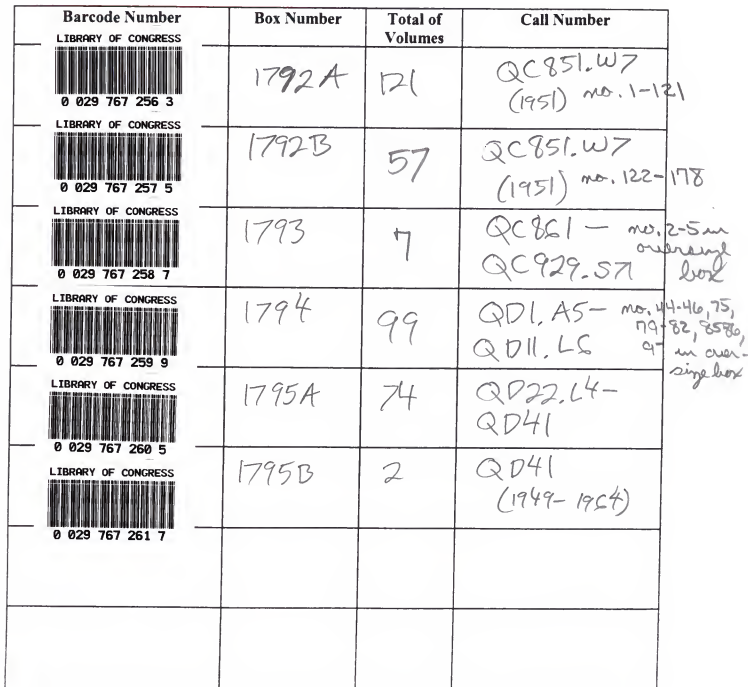 Barcode Number Box Number Total of Volumes Call Number
LIBRARY OF CONGRESS
0 029 767 256 3
1792A 121 QC851.W7
(1951) no. 1-121
LIBRARY OF CONGRESS
0 029 767 257 5
1792B 57 QC851.W7
(1951) no. 122-178
LIBRARY OF CONGRESS
0 029 767 258 7
1793 7 QC861 – no. 2-5 in
oversized
QC929.S71 box
LIBRARY OF CONGRESS
0 029 767 259 9
1794 99 QD1.A5– no. 44-46, 75,
79-82, 8586,
QD11.L6 in over-
size box
LIBRARY OF CONGRESS
0 029 767 260 5
1795A 74 QD22.L4–
QD41
LIBRARY OF CONGRESS
0 029 767 261 7
1795B 2 QD41
(1949-1964)